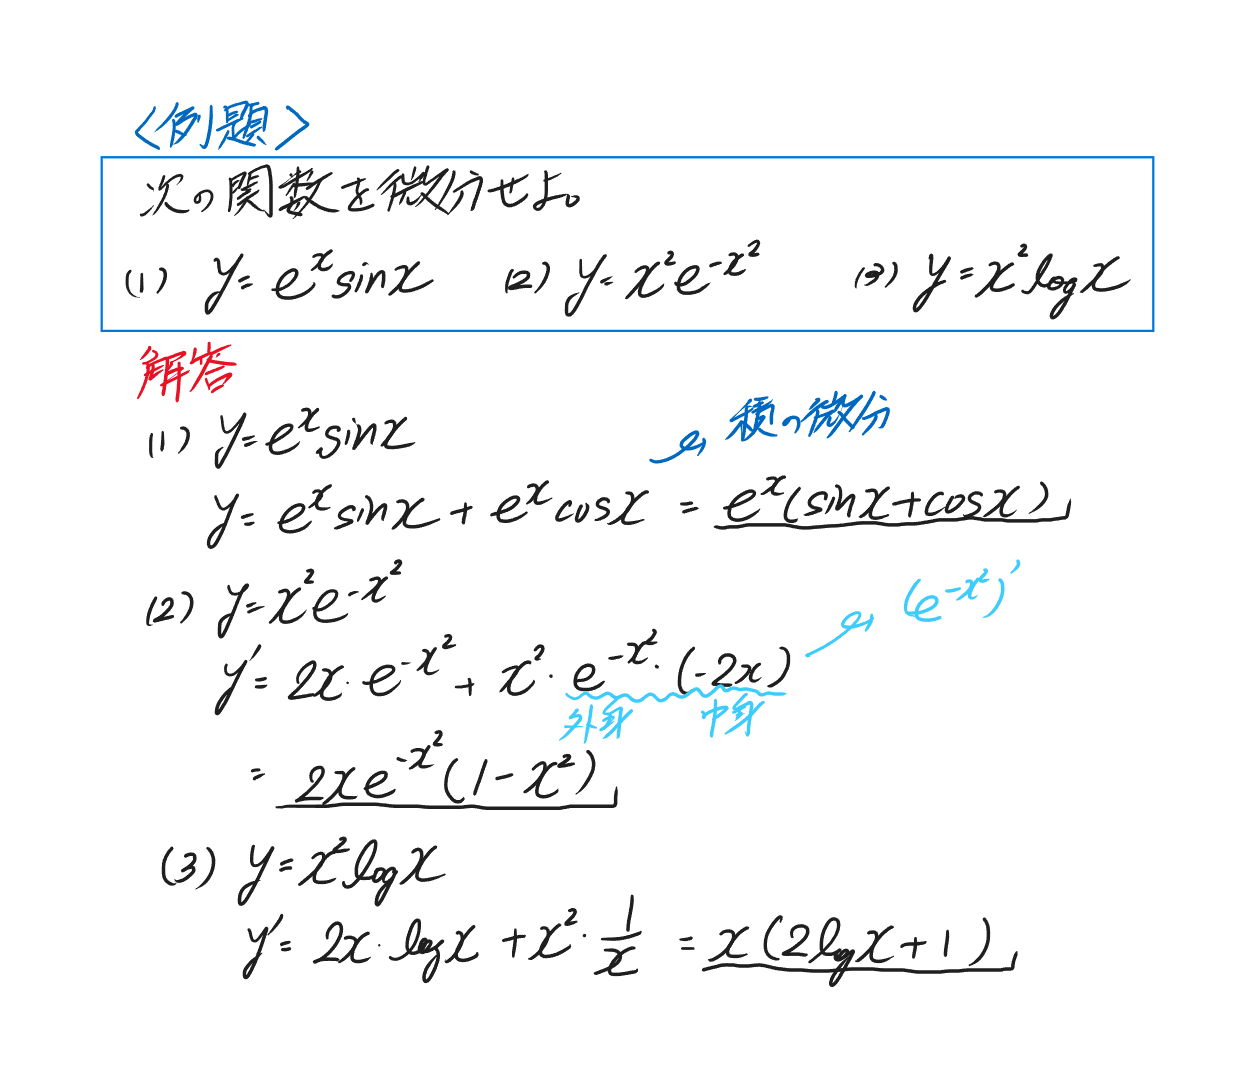 〈例題〉
次の関数を微分せよ。
(1) y = eˣ sin x (2) y = x² e^{-x²} (3) y = x² log x
解答
(1) y = eˣ sin x
積の微分
y = eˣ sin x + eˣ cos x = eˣ (sin x + cos x)
(2) y = x² e^{-x²}
(e^{-x²})'
y' = 2x · e^{-x²} + x² · e^{-x²} · (-2x)
外身 中身
= 2x e^{-x²} (1 - x²)
(3) y = x² log x
y' = 2x · log x + x² · 1/x = x (2 log x + 1)